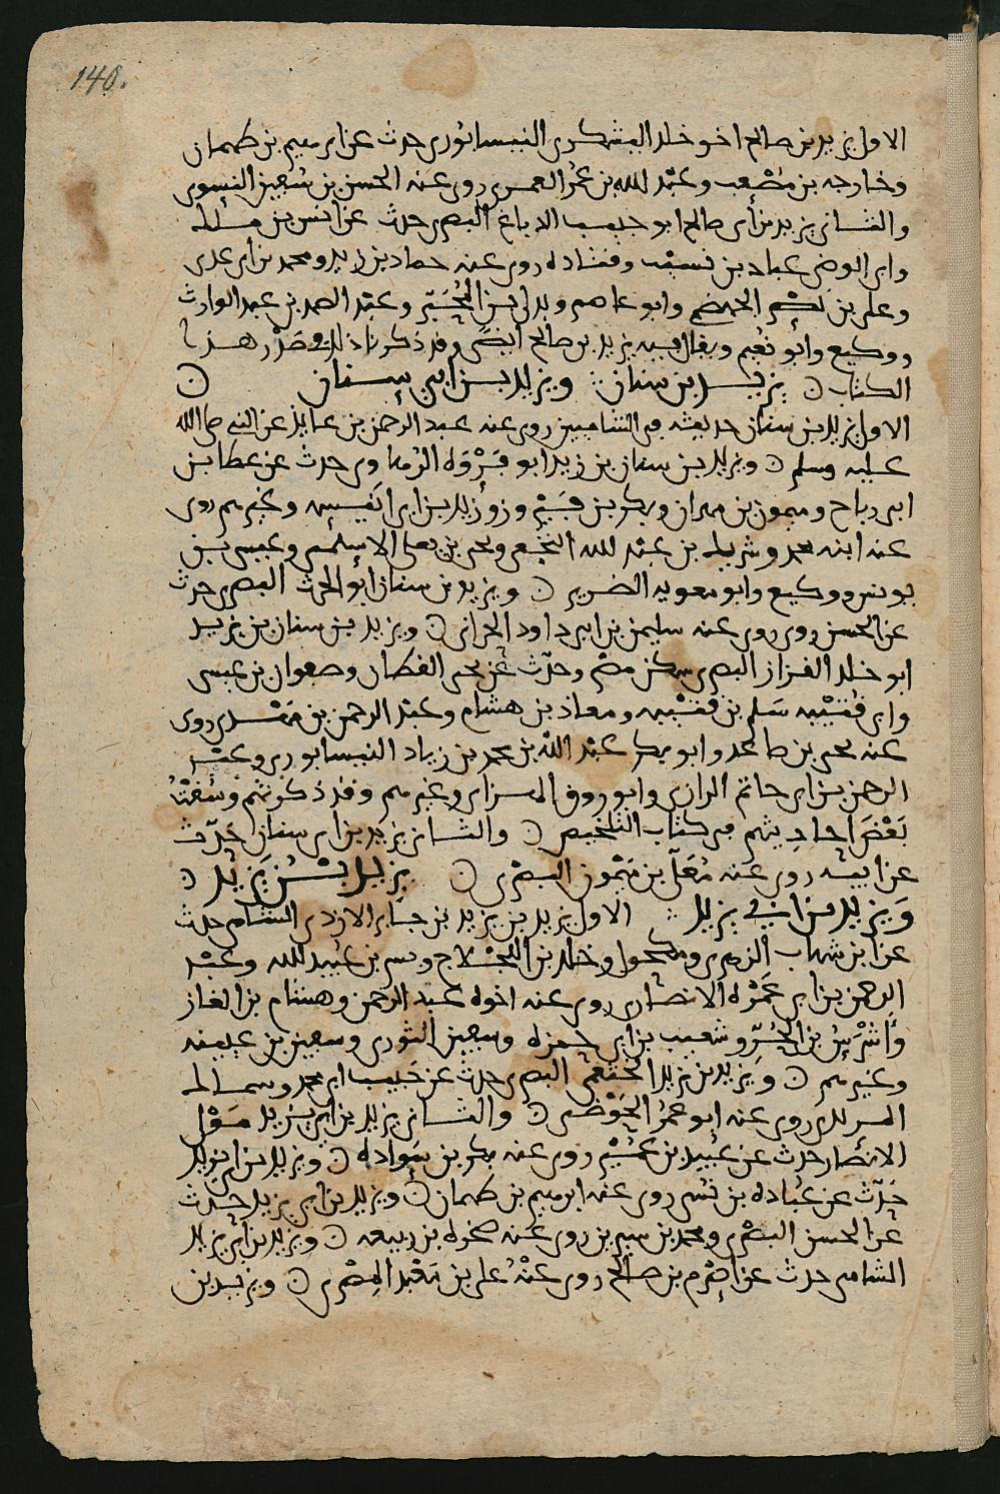 140.
الاول يزيد بن صالح اخو خلد اليشكري النيسابوري حدث عن ابرهيم بن طهمان
وخارجه بن مصعب وعبد الله بن عمر العمري روى عنه الحسن بن سفين النسوي
والثاني يزيد بن أبي صالح ابو حبيب الدباغ البصري حدث عن انس بن ملك
وابي الوضي عباد بن نسيب وقتاده روى عنه حماد بن زيد ومحمد بن ابي عدي
وعلي بن نصر الجهضمي وابو عاصم وبدل بن المحبر وعبد الصمد بن عبد الوارث
ووكيع وابو نعيم ويقال فيه يزيد بن صالح ايضا وقد ذكرنا ذلك في صدر هذا
الكتاب ن يزيد بن سنان ويزيد بن ابي سنان ن
الاول يزيد بن سنان حديثه في الشاميين روى عنه عبد الرحمن بن عايذ عن النبي صلى الله
عليه وسلم ن ويزيد بن سنان بن زيد ابو فروه الرهاوي حدث عن عطا بن
ابي رباح وميمون بن مهران وبكير بن وزيد بن ابي انيسه وغيرهم روى
عنه ابنه محمد وشريك بن عبد الله النخعي ويحيى بن يعلى الاسلمي وعيسى بن
يونس ووكيع وابو معويه الضرير ن ويزيد بن سنان ابو الحرث البصري حدث
عن الحسن روى روى عنه سليمن بن ابي داود الحراني ن ويزيد بن سنان بن يزيد
ابو خلد القزاز البصري سكن مصر وحدث عن يحيى القطان وصفوان بن عيسى
وابي قتيبه سلم بن قتيبه ومعاذ بن هشام وعبد الرحمن بن مهدي روى
عنه يحيى بن صاعد وابو بكر عبد الله بن محمد بن زياد النيسابوري وعبد
الرحمن بن ابي حاتم الرازي وابو روق الهزاني وغيرهم وقد ذكرتهم وسقت
بعض احاديثهم في كتاب التلخيص ن والثاني يزيد بن ابي سنان حدث
عن ابيه روى عنه معلى بن ميمون البصري ن يزيد بن يزيد ن
ويزيد بن ابي يزيد الاول يزيد بن يزيد بن جابر الازدي الشامي حدث
عن ابن شهاب الزهري ومكحول وخلد بن اللجلاج وبسر بن عبيد الله وعبد
الرحمن بن ابي عمره الانصاري روى عنه اخوه عبد الرحمن وهشام بن الغاز
وشعيب بن ابي حمزه وسفين الثوري وسفين بن عيينه
وغيرهم ن ويزيد بن يزيد الخثعمي البصري حدث عن حبيب ابي محمد وسماك
المربدي روى عنه ابو عمر الحوضي ن والثاني يزيد بن ابي يزيد مولى
الانصار حدث عن عبيد بن روى عنه بكر بن سواده ن ويزيد بن ابي يزيد
حدث عن عباده بن نسي روى عنه ابرهيم بن طهمان ن ويزيد بن ابي يزيد حدث
عن الحسن البصري ومحمد بن سيرين روى عنه ضمره بن ربيعه ن ويزيد بن ابي يزيد
الشامي حدث عن بن صالح روى عنه علي بن معبد المصري ن ويزيد بن